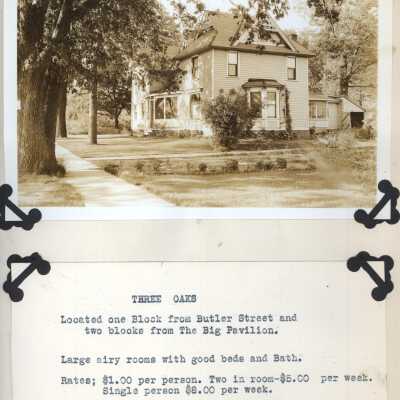 THREE OAKS
Located one Block from Butler Street and
two blocks from The Big Pavilion.
Large airy rooms with good beds and Bath.
Rates; $1.00 per person. Two in room-$5.00 per week.
Single person $8.00 per week.